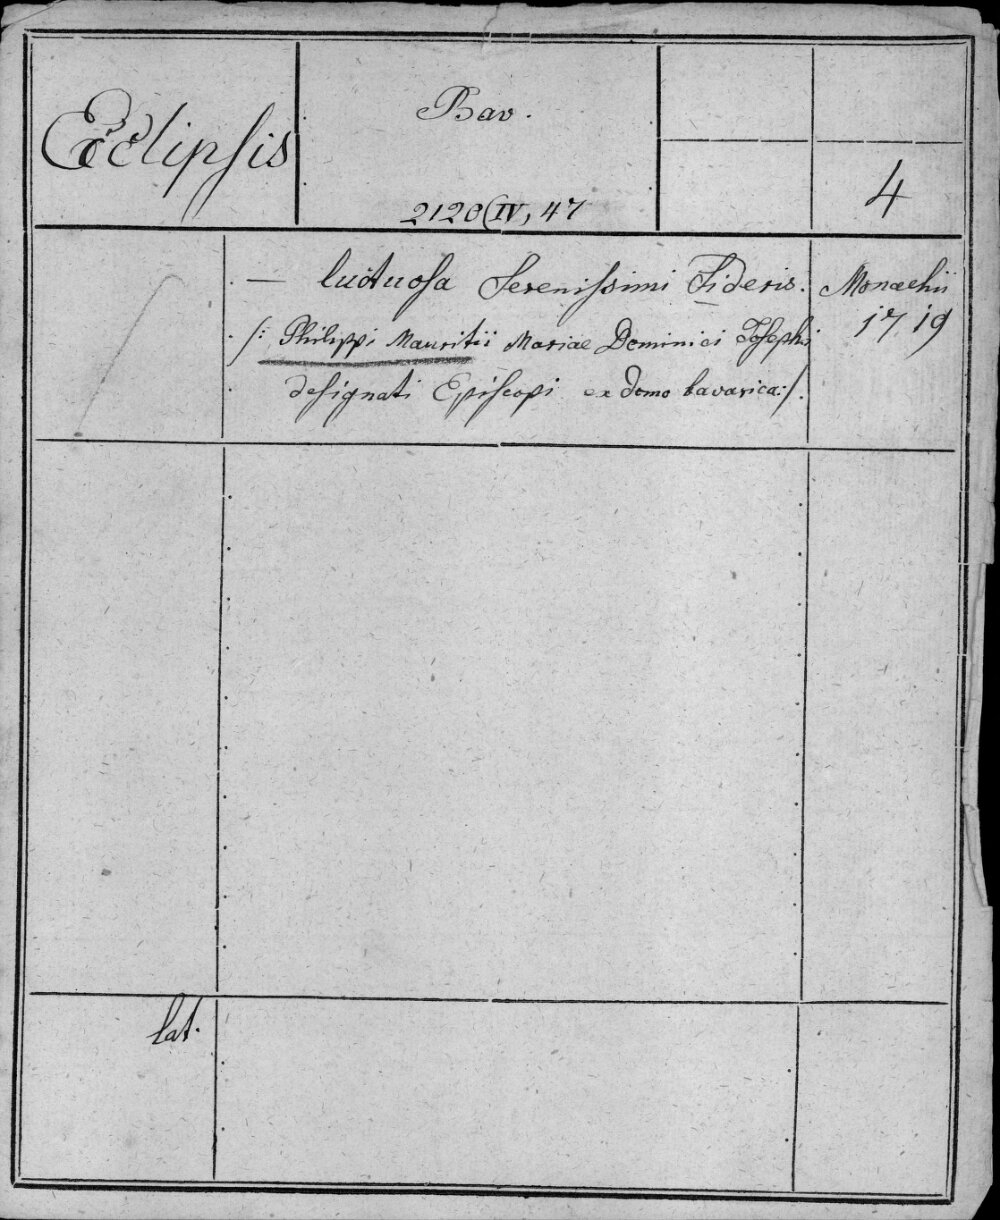 Eclipsis
Bav.
2120(IV, 47
4
— luctuosa Serenissimi Sideris.
Monachii
1719
/: Philippi Mauritii Mariae Dominici Josephi
designati Episcopi ex domo bavarica :/.
lat.